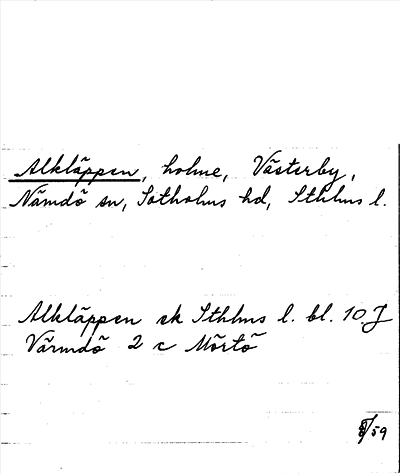 Alkläppen, holme, Västerby,
Nämdö sn, Sotholms hd, Sthlms l.
Alkläppen ek Sthlms l. bl. 10 J
Värmdö 2 c Mörtö
/59